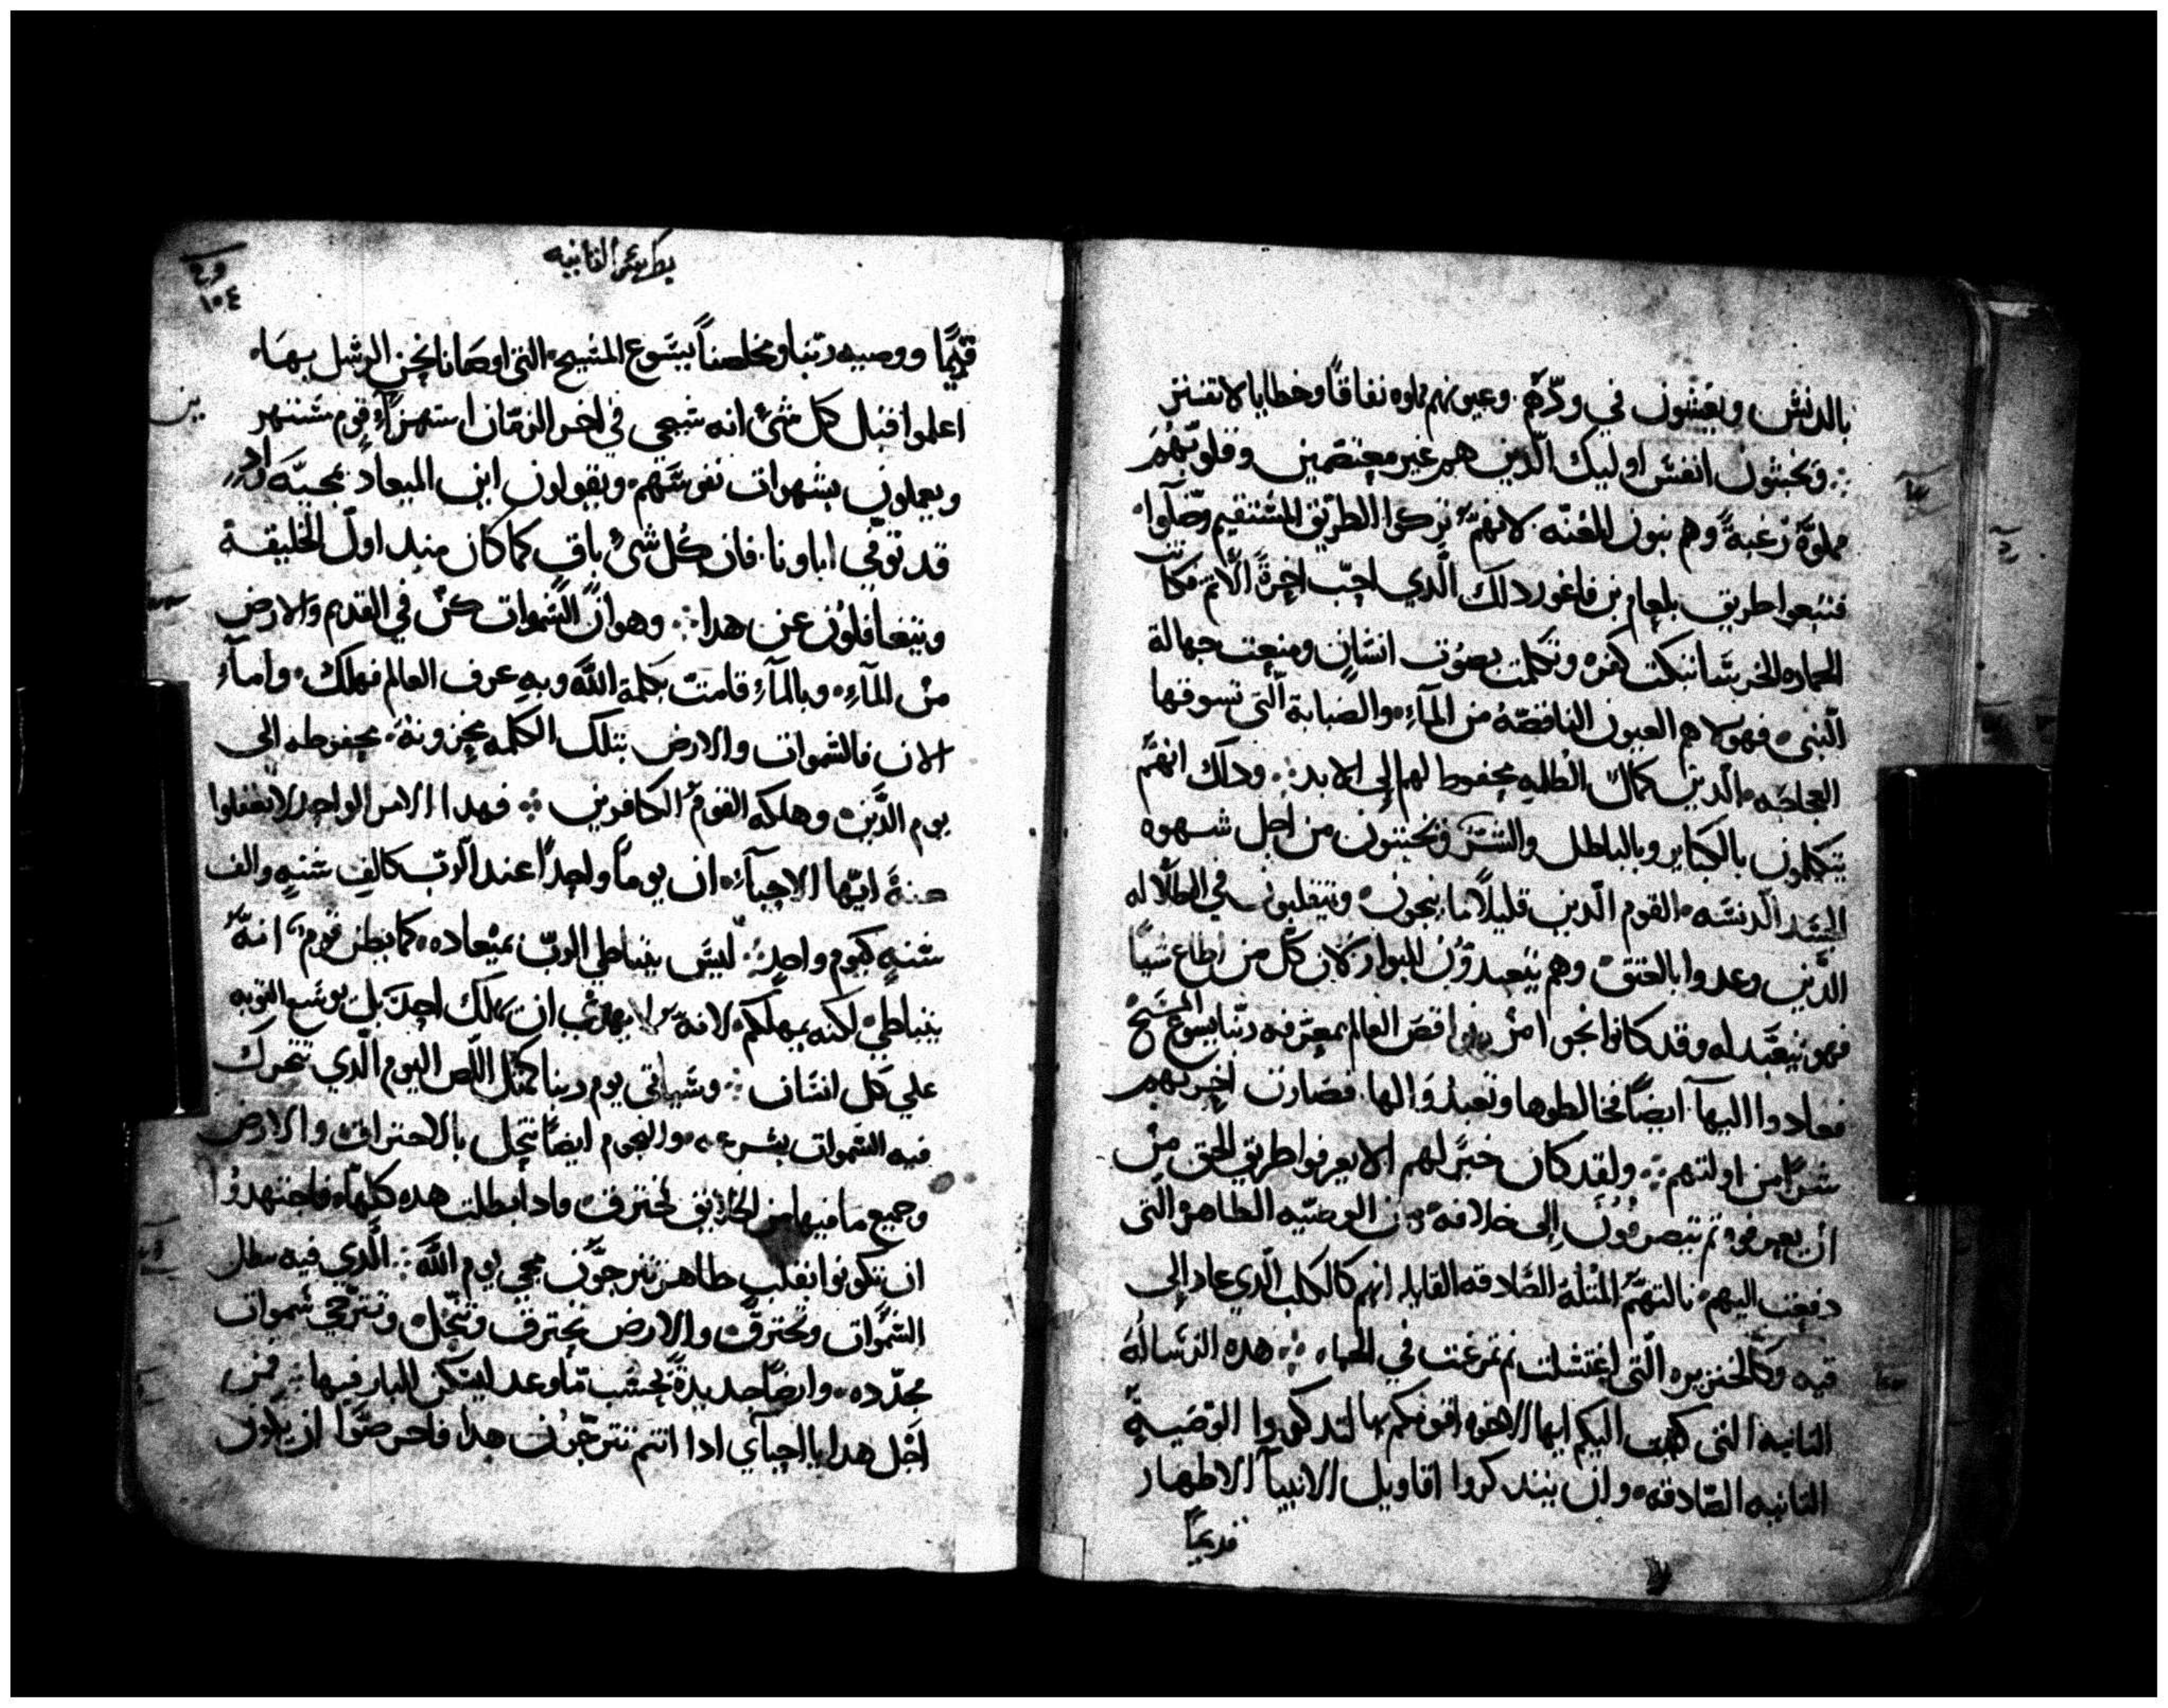 بالدنس ويعيشون في ودّهم. وعيونهم مملوه نفاقًا وخطايا لا تفتر
وتخبثون انفس اوليك الّذين هم غير معتصمين وقلوبهم
مملوّةً رُغبةً وهم بنون اللعنه لانهم تركوا الطريق المستقيم وضّلوا
فتبعوا طريق بلعام بن فاغور دلك الّذي احبّ اجرةً الاثم فكانت
الحماره الخرسا نبكت كفره وتكلمت بصوت انسانٍ ومنعت جهالة
النبى فهولا هم العيون الناقصّه من المآءِ والضبابة الّتى تسوقها
العجاجه الّدين كمال الظلمه محفوظ لهم الى الابد وذلك انهم
يتكلمون بالكباير وبالباطل والشر ويخبثون من اجل شهوه
الجسد الّدنسه القوم الّدين قليلًا ما ينجون ويتقلبون في الطلاله
الدّين وعدوا بالعتق وهم يتعبدوُن للبوار لان كل من اطاع شيًا
فهو يتعبّد له وقد كانوا نجوا من نواقص العالم بمعرفه ربّنا يسوع المسيح
فعادوا اليها ايضًا فخالطوها وتعبدُوا لها. فصارت اخرتهم
شرًا من اولتهم ولقد كان خيرًا لهم الا يعرفوا طريق الحق مِن
ان يعرفوه ثم ينصرفوُن إلى خلافه عن الوصيّه الطاهره التى
دفعت اليهم نالتهم المثلة الصّادقه القايله انهم كالكلب الّذي عاد إلى
قيه وكالخنزيره الّتى اغتسلت ثم تمرغت في الحماه هده الرسالة
التانيه التى كتبت اليكم ايها الاخوه اقومكم بها لتدكروا الوصيةُ
التانيه الصّادقه وان يتدكروا اقاويل الانبيآ الاطهار
قديمًا
بطرس التانيه
١٠٤
قديمًا ووصيه ربّنا ومخلصناً يسوع المسيح التى اوصانا نحن الرسل بها
اعلموا قبل كل شئ انه سيجي في اخر الزمان استهزآء قوم ستنهز
ويعملون بشهوات نفوسهم ويقولون اين الميعاد بمجيّه اد
قد توّفي اباونا. فان كُل شئ باقٍ كما كان مند اولّ الخليقة
ويتغافلوُن عن هدا وهو انّ السّموات كنّ في القدم والارض
مِن المآءِ وبالمآءِ قامت بكلمة اللّه وبه عرف العالم فهلك واما
الان فالسّموات والارض بتلك الكلمه مخزونة محفوظه الى
يوم الدّين وهلكه القومُ الكافرين فهدا الامر الواحد لا تغفلوا
عنهُ ايّها الاحبآء ان يوماً واحداً عند الرّب كالف سنهٍ والف
سنهٍ كيوم واحدٍ ليس يتباطي الربّ بميعاده كما يظن قوم انه
يتباطي لكنه يمهلكم لانه لا يهوى ان يهلك احدَ بل يوسع التوبه
علي كل انسان وسياتي يوم ربنا كمثل اللّص اليوم الّذي تتحرك
فيه السّموات بسرعه والنجوم ايضًا تنحل بالاحتراق والارض
وجميع ما فيها من الخلايق تحترق فادا بطلت هده كلهاّ فاجتهدوُا
ان تكونوا بقلب طاهر تترجّون مجي يوم اللّه الّذي فيه تبطل
السّموات وتحترق والارض تحترق وتنّحل وتترّجي سموات
مجدّده وارضاً جديدةً بحسب مّا وعد ليسكن البار فيها فمن
اجّل هدا يا احبآي ادا انتم تترجّون هدا فاحرصوّا ان تكون